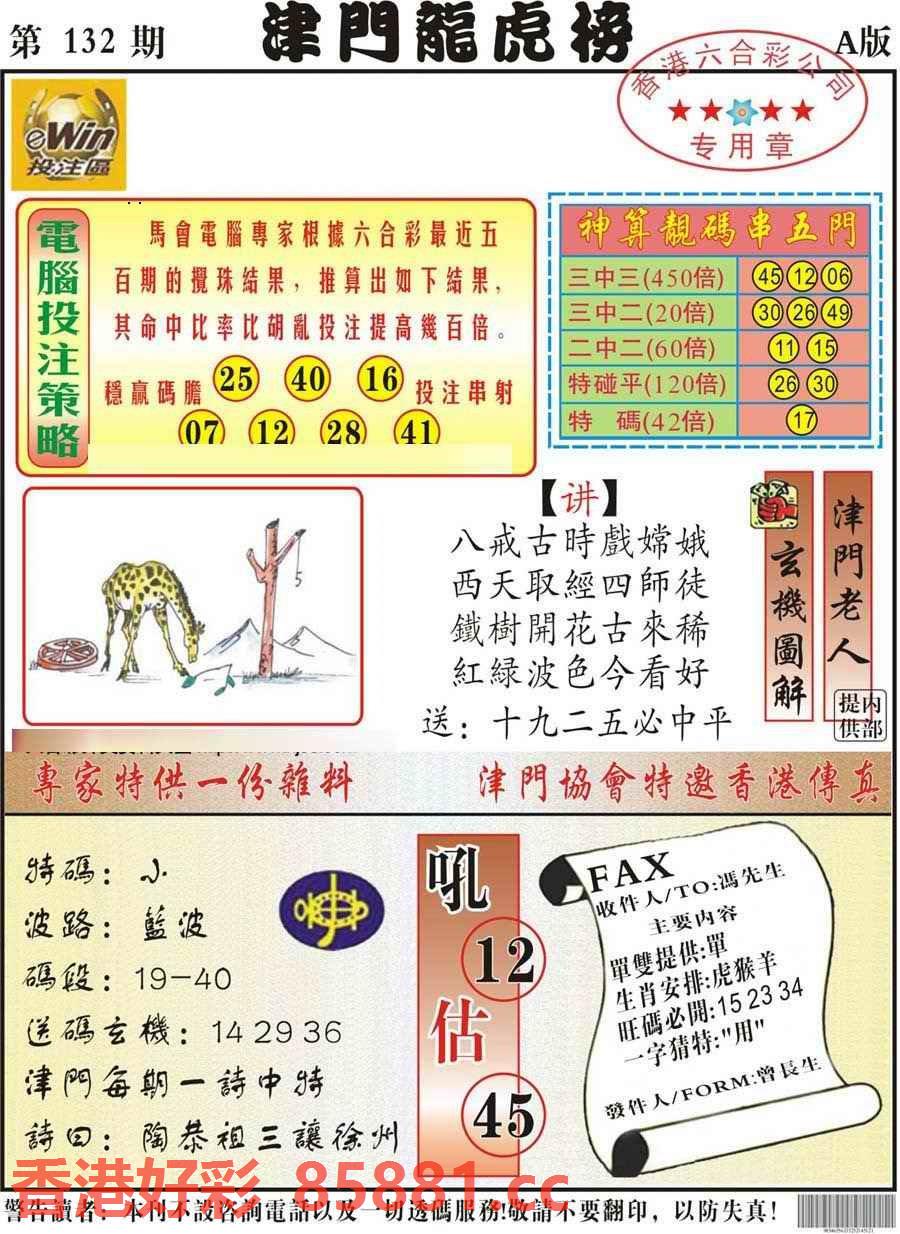 第 132 期
津門龍虎榜
A版
香港六合彩公司
专用章
eWin
投注區
電腦投注策略
馬會電腦專家根據六合彩最近五
百期的攪珠結果，推算出如下結果，
其命中比率比胡亂投注提高幾百倍。
穩贏碼膽 25 40 16 投注串射
07 12 28 41
神算靚碼串五門
三中三(450倍) 45 12 06
三中二(20倍) 30 26 49
二中二(60倍) 11 15
特碰平(120倍) 26 30
特 碼(42倍) 17
5
【讲】
八戒古時戲嫦娥
西天取經四師徒
鐵樹開花古來稀
紅緑波色今看好
送：十九二五必中平
玄機圖解
津門老人
内部提供
專家特供一份雜料
津門協會特邀香港傳真
特碼：小
波路：藍波
碼段：19-40
送碼玄機：14 29 36
津門每期一詩中特
詩曰：陶恭祖三讓徐州
吼
12
估
45
FAX
收件人/TO:馮先生
主要内容
單雙提供:單
生肖安排:虎猴羊
旺碼必開:15 23 34
一字猜特:"用"
發件人/FORM:曾長生
香港好彩 85881.cc
警告讀者：本刊不設咨詢電話以及一切透碼服務!敬請不要翻印，以防失真!